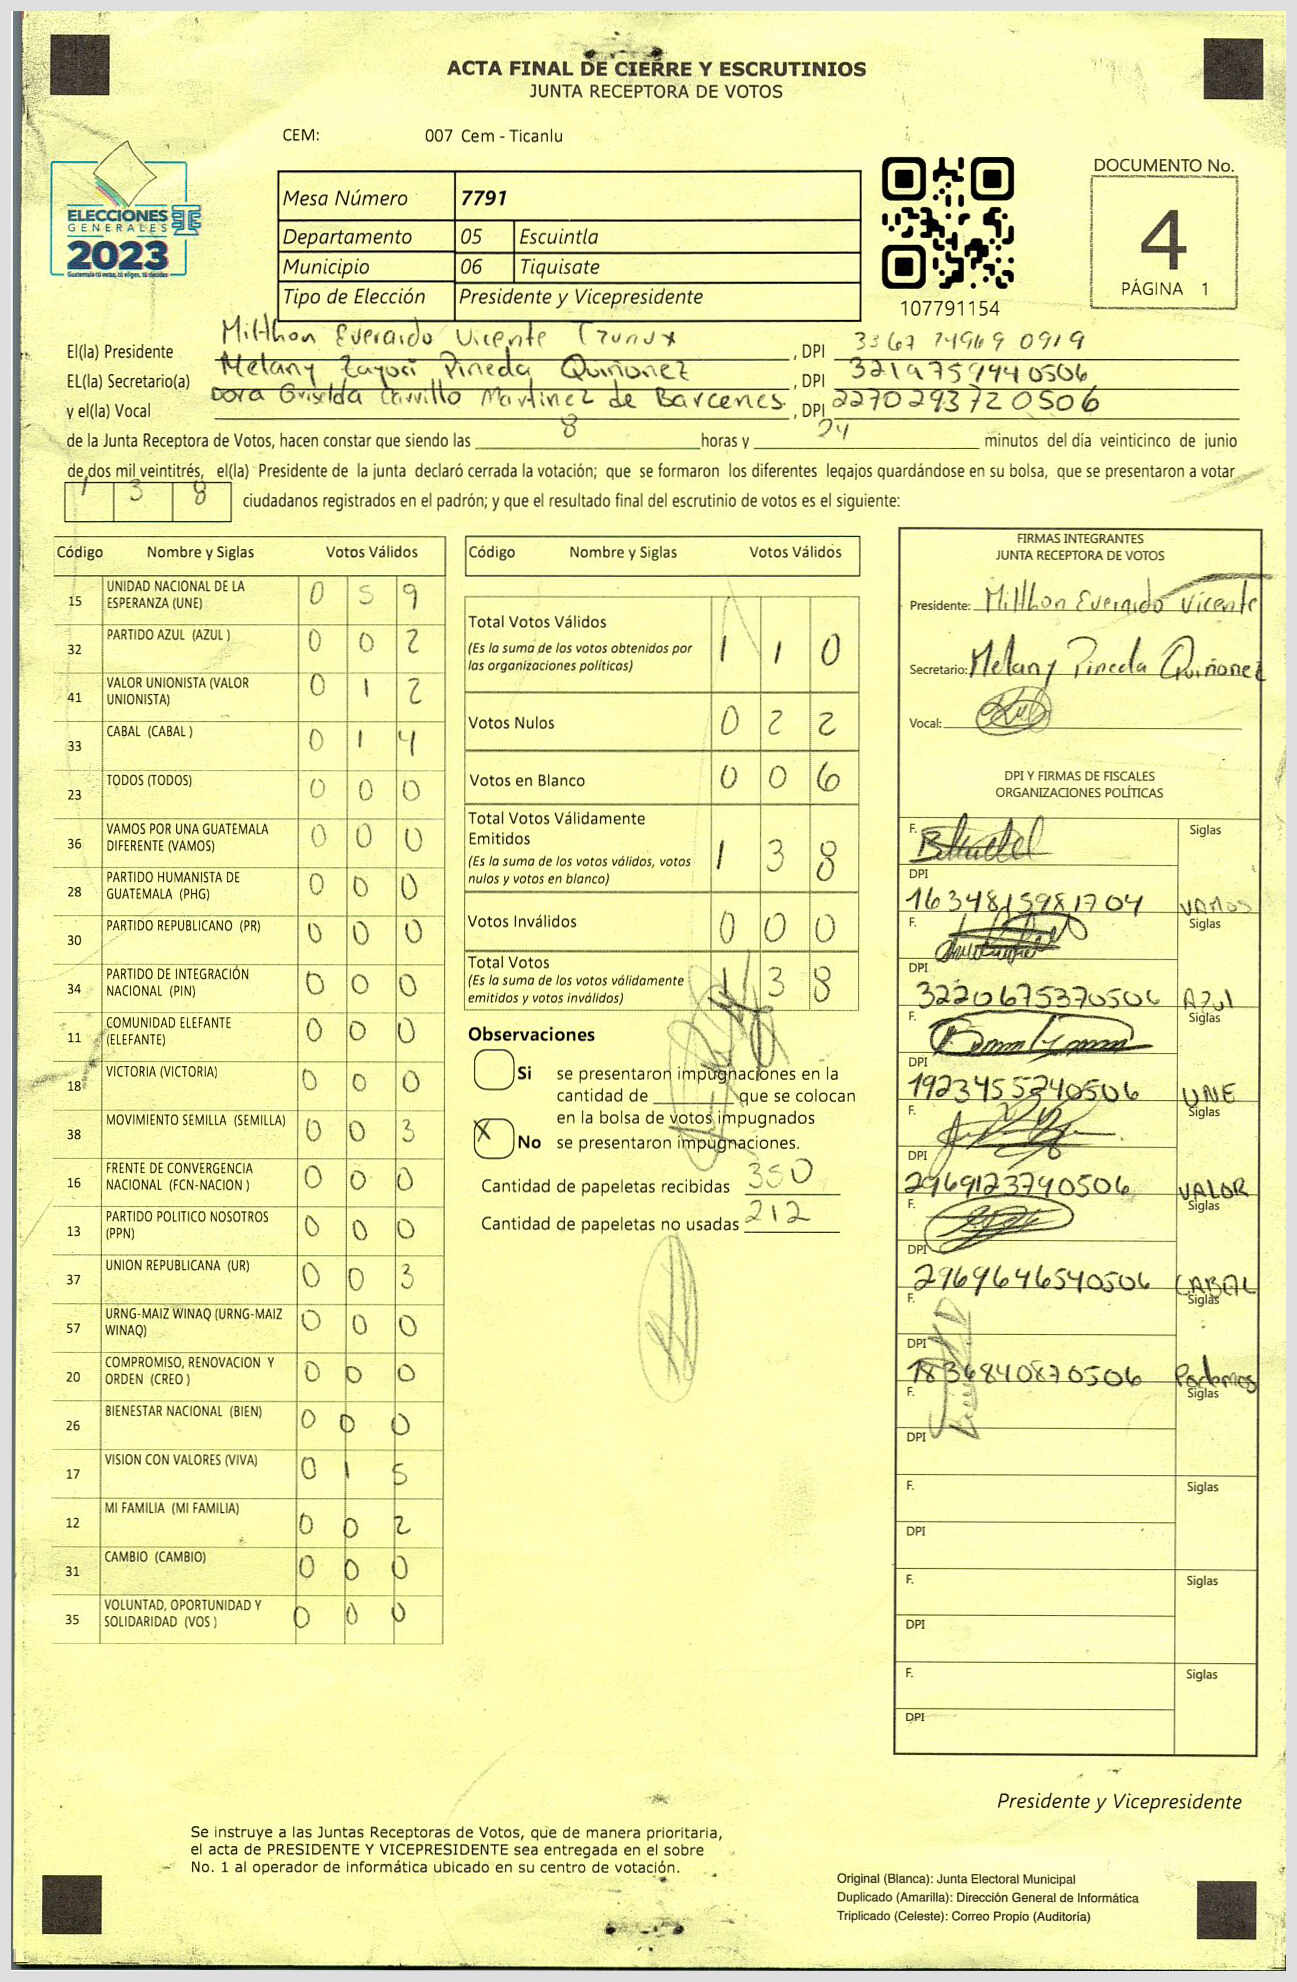 ACTA FINAL DE CIERRE Y ESCRUTINIOS
JUNTA RECEPTORA DE VOTOS
CEM: 007 Cem - Ticanlu
ELECCIONES
GENERALES
2023
Guatemala tú votas, tú eliges, tú decides
Mesa Número 7791
Departamento 05 Escuintla
Municipio 06 Tiquisate
Tipo de Elección Presidente y Vicepresidente
107791154
DOCUMENTO No.
4
PÁGINA 1
El(la) Presidente Milthon Everaldo Vicente , DPI 3367 74969 0919
EL(la) Secretario(a) Melany Pineda Quiñonez , DPI 3219759940506
y el(la) Vocal Dora Griselda Carrillo Martinez de Barcenes , DPI 2270293720506
de la Junta Receptora de Votos, hacen constar que siendo las 8 horas y 24 minutos del día veinticinco de junio
de dos mil veintitrés, el(la) Presidente de la junta declaró cerrada la votación; que se formaron los diferentes legajos quardándose en su bolsa, que se presentaron a votar
1 3 8 ciudadanos registrados en el padrón; y que el resultado final del escrutinio de votos es el siguiente:
Código Nombre y Siglas Votos Válidos
15 UNIDAD NACIONAL DE LA ESPERANZA (UNE) 0 5 9
32 PARTIDO AZUL (AZUL ) 0 0 2
41 VALOR UNIONISTA (VALOR UNIONISTA) 0 1 2
33 CABAL (CABAL ) 0 1 4
23 TODOS (TODOS) 0 0 0
36 VAMOS POR UNA GUATEMALA DIFERENTE (VAMOS) 0 0 0
28 PARTIDO HUMANISTA DE GUATEMALA (PHG) 0 0 0
30 PARTIDO REPUBLICANO (PR) 0 0 0
34 PARTIDO DE INTEGRACIÓN NACIONAL (PIN) 0 0 0
11 COMUNIDAD ELEFANTE (ELEFANTE) 0 0 0
18 VICTORIA (VICTORIA) 0 0 0
38 MOVIMIENTO SEMILLA (SEMILLA) 0 0 3
16 FRENTE DE CONVERGENCIA NACIONAL (FCN-NACION ) 0 0 0
13 PARTIDO POLITICO NOSOTROS (PPN) 0 0 0
37 UNION REPUBLICANA (UR) 0 0 3
57 URNG-MAIZ WINAQ (URNG-MAIZ WINAQ) 0 0 0
20 COMPROMISO, RENOVACION Y ORDEN (CREO ) 0 0 0
26 BIENESTAR NACIONAL (BIEN) 0 0 0
17 VISION CON VALORES (VIVA) 0 1 5
12 MI FAMILIA (MI FAMILIA) 0 0 2
31 CAMBIO (CAMBIO) 0 0 0
35 VOLUNTAD, OPORTUNIDAD Y SOLIDARIDAD (VOS ) 0 0 0
Código Nombre y Siglas Votos Válidos
Total Votos Válidos 1 1 0
(Es la suma de los votos obtenidos por
las organizaciones políticas)
Votos Nulos 0 2 2
Votos en Blanco 0 0 6
Total Votos Válidamente
Emitidos 1 3 8
(Es la suma de los votos válidos, votos
nulos y votos en blanco)
Votos Inválidos 0 0 0
Total Votos 1 3 8
(Es la suma de los votos válidamente
emitidos y votos inválidos)
Observaciones
Si se presentaron impugnaciones en la
cantidad de ______ que se colocan
en la bolsa de votos impugnados
X No se presentaron impugnaciones.
Cantidad de papeletas recibidas 350
Cantidad de papeletas no usadas 212
FIRMAS INTEGRANTES
JUNTA RECEPTORA DE VOTOS
Presidente: Milthon Everaldo Vicente
Secretario: Melany Pineda Quiñonez
Vocal:
DPI Y FIRMAS DE FISCALES
ORGANIZACIONES POLÍTICAS
F. Siglas
DPI 1634815981704 VAMOS
F. Siglas
DPI 3220675370506 Azul
F. Siglas
DPI 1923455240506 UNE
F. Siglas
DPI 2969123790506 VALOR
F. Siglas
DPI 2969646540506 CABAL
F. Siglas
DPI 1836840870506 Podemos
F. Siglas
DPI
F. Siglas
DPI
F. Siglas
DPI
F. Siglas
DPI
Presidente y Vicepresidente
Se instruye a las Juntas Receptoras de Votos, que de manera prioritaria,
el acta de PRESIDENTE Y VICEPRESIDENTE sea entregada en el sobre
No. 1 al operador de informática ubicado en su centro de votación.
Original (Blanca): Junta Electoral Municipal
Duplicado (Amarilla): Dirección General de Informática
Triplicado (Celeste): Correo Propio (Auditoría)